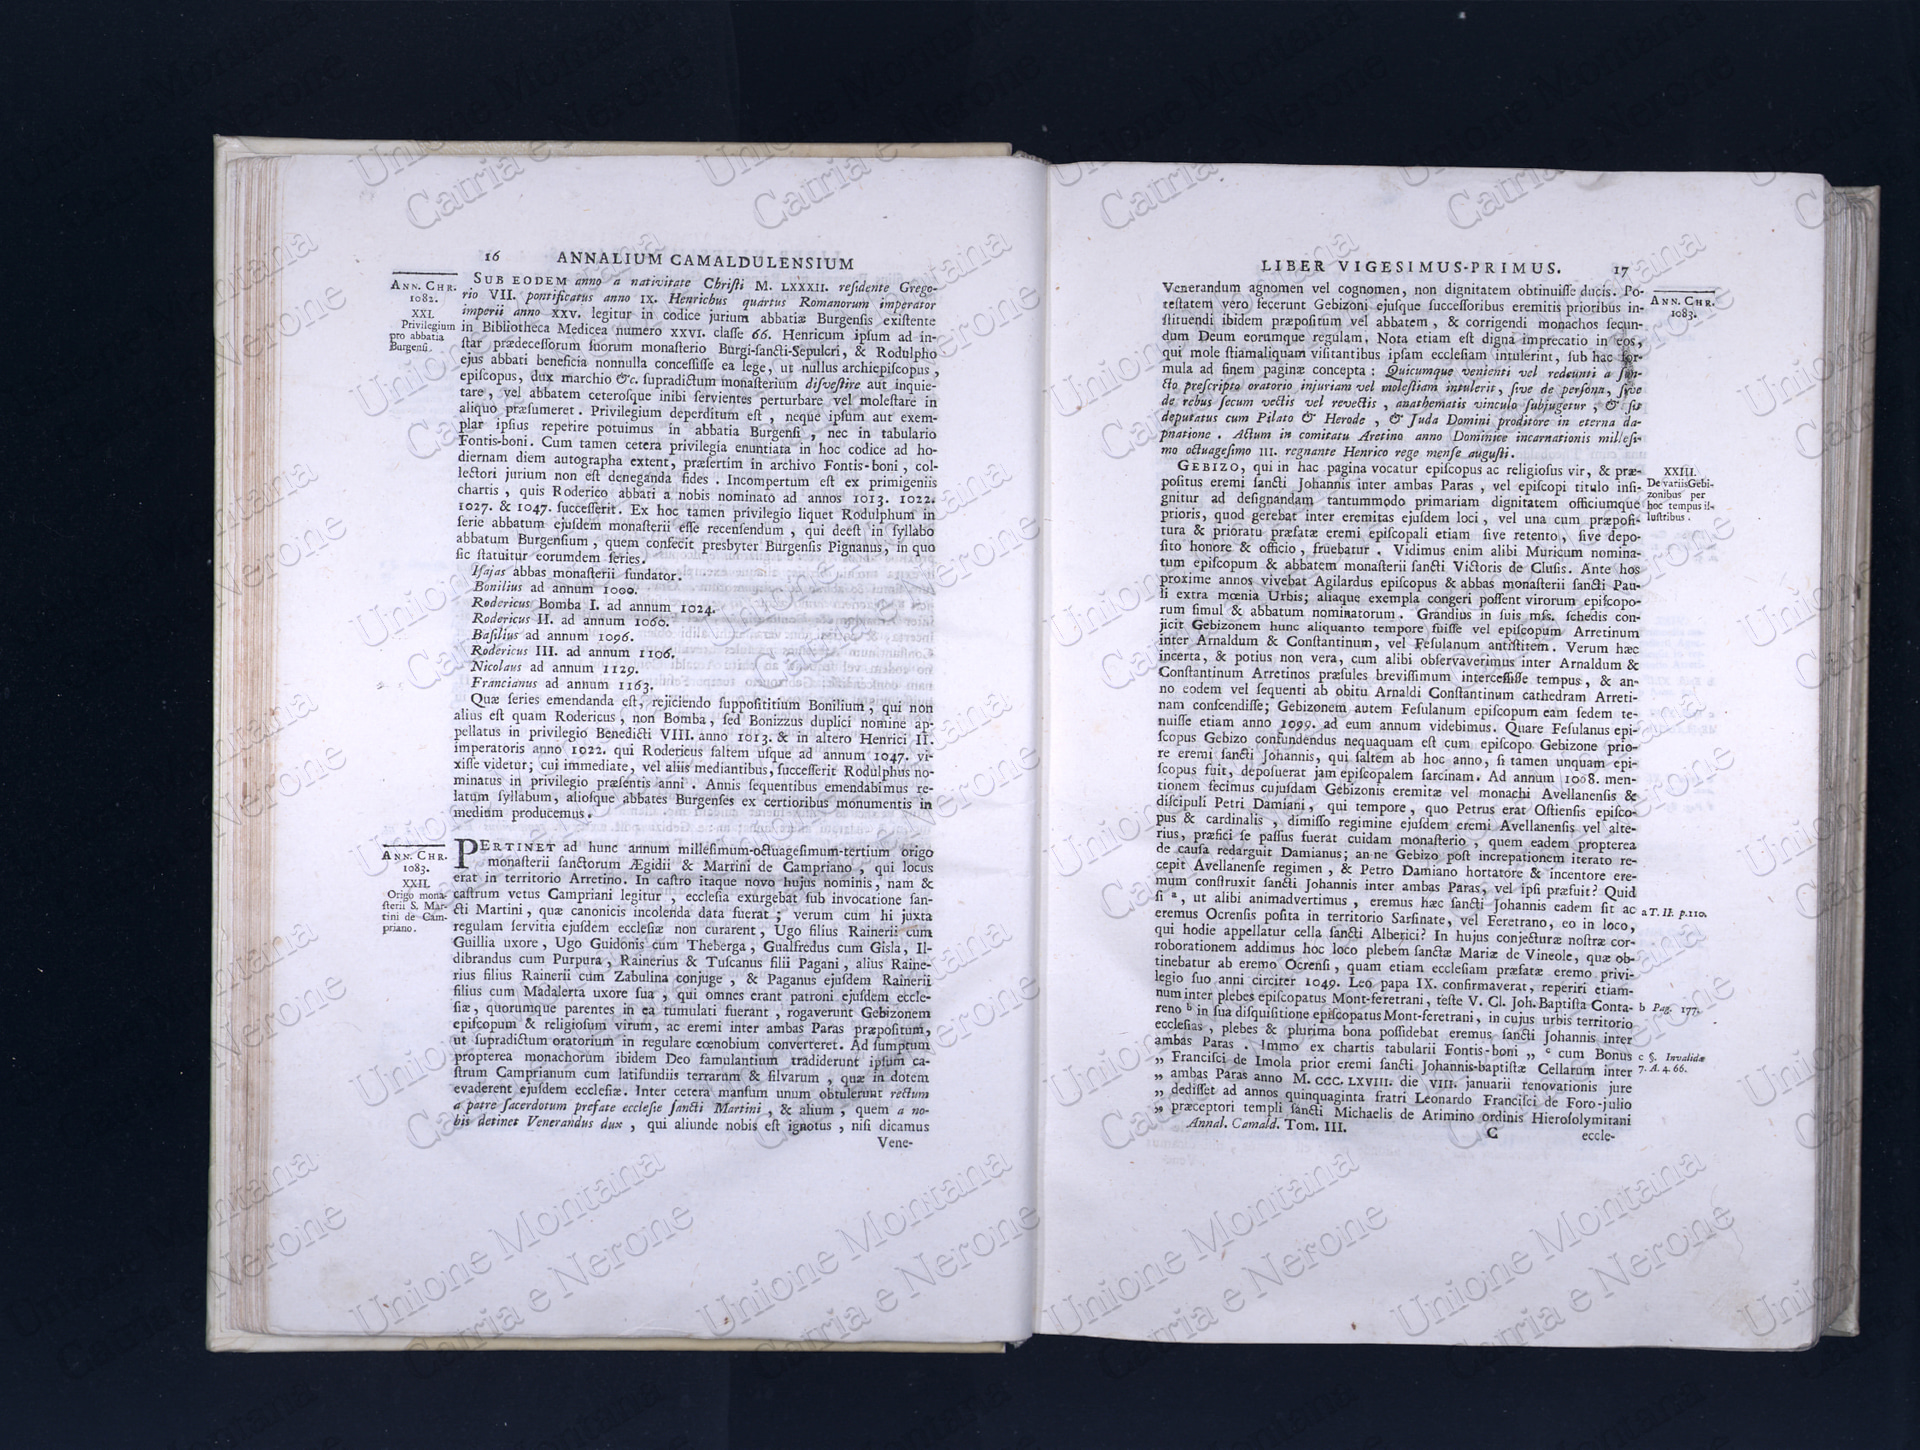 16 ANNALIUM CAMALDULENSIUM
ANN. CHR.
1082.
XXI.
Privilegium
pro abbatia
Burgensi.
SUB EODEM anno a nativitate Christi M. LXXXII. residente Grego-
rio VII. pontificatus anno IX. Henrichus quartus Romanorum imperator
imperii anno XXV. legitur in codice jurium abbatiæ Burgensis existente
in Bibliotheca Medicea numero XXVI. classe 66. Henricum ipsum ad in-
star prædecessorum suorum monasterio Burgi-sancti-Sepulcri, & Rodulpho
ejus abbati beneficia nonnulla concessisse ea lege, ut nullus archiepiscopus,
episcopus, dux marchio &c. supradictum monasterium disvestire aut inquie-
tare, vel abbatem ceterosque inibi servientes perturbare vel molestare in
aliquo præsumeret. Privilegium deperditum est, neque ipsum aut exem-
plar ipsius reperire potuimus in abbatia Burgensi, nec in tabulario
Fontis-boni. Cum tamen cetera privilegia enuntiata in hoc codice ad ho-
diernam diem autographa extent, præsertim in archivo Fontis-boni, col-
lectori jurium non est deneganda fides. Incompertum est ex primigeniis
chartis, quis Roderico abbati a nobis nominato ad annos 1013. 1022.
1027. & 1047. successerit. Ex hoc tamen privilegio liquet Rodulphum in
serie abbatum ejusdem monasterii esse recensendum, qui deest in syllabo
abbatum Burgensium, quem confecit presbyter Burgensis Pignanus, in quo
sic statuitur eorumdem series.
Isajas abbas monasterii fundator.
Bonilius ad annum 1000.
Rodericus Bomba I. ad annum 1024.
Rodericus II. ad annum 1060.
Basilius ad annum 1096.
Rodericus III. ad annum 1106.
Nicolaus ad annum 1129.
Francianus ad annum 1163.
Quæ series emendanda est, rejiciendo supposititium Bonilium, qui non
alius est quam Rodericus, non Bomba, sed Bonizzus duplici nomine ap-
pellatus in privilegio Benedicti VIII. anno 1013. & in altero Henrici II.
imperatoris anno 1022. qui Rodericus saltem usque ad annum 1047. vi-
xisse videtur; cui immediate, vel aliis mediantibus, successerit Rodulphus no-
minatus in privilegio præsentis anni. Annis sequentibus emendabimus re-
latum syllabum, aliosque abbates Burgenses ex certioribus monumentis in
medium producemus.
ANN. CHR.
1083.
XXII.
Origo mona-
sterii S. Mar-
tini de Cam-
priano.
PERTINET ad hunc annum millesimum-octuagesimum-tertium origo
monasterii sanctorum Ægidii & Martini de Campriano, qui locus
erat in territorio Arretino. In castro itaque novo hujus nominis, nam &
castrum vetus Campriani legitur, ecclesia exurgebat sub invocatione san-
cti Martini, quæ canonicis incolenda data fuerat; verum cum hi juxta
regulam servitia ejusdem ecclesiæ non curarent, Ugo filius Rainerii cum
Guillia uxore, Ugo Guidonis cum Theberga, Gualfredus cum Gisla, Il-
dibrandus cum Purpura, Rainerius & Tuscanus filii Pagani, alius Raine-
rius filius Rainerii cum Zabulina conjuge, & Paganus ejusdem Rainerii
filius cum Madalerta uxore sua, qui omnes erant patroni ejusdem eccle-
siæ, quorumque parentes in ea tumulati fuerant, rogaverunt Gebizonem
episcopum & religiosum virum, ac eremi inter ambas Paras præpositum,
ut supradictum oratorium in regulare cœnobium converteret. Ad sumptum
propterea monachorum ibidem Deo famulantium tradiderunt ipsum ca-
strum Camprianum cum latifundiis terrarum & silvarum, quæ in dotem
evaderent ejusdem ecclesiæ. Inter cetera mansum unum obtulerunt rectum
a patre sacerdotum prefate ecclesie sancti Martini, & alium, quem a no-
bis detinet Venerandus dux, qui aliunde nobis est ignotus, nisi dicamus
Vene-
LIBER VIGESIMUS-PRIMUS. 17
ANN. CHR.
1083.
Venerandum agnomen vel cognomen, non dignitatem obtinuisse ducis. Po-
testatem vero fecerunt Gebizoni ejusque successoribus eremitis prioribus in-
stituendi ibidem præpositum vel abbatem, & corrigendi monachos secun-
dum Deum eorumque regulam. Nota etiam est digna imprecatio in eos,
qui mole stiamaliquam visitantibus ipsam ecclesiam intulerint, sub hac for-
mula ad finem paginæ concepta: Quicumque venienti vel redeunti a san-
cto prescripto oratorio injuriam vel molestiam intulerit, sive de persona, sive
de rebus secum vectis vel revectis, anathematis vinculo subjugetur, & sit
deputatus cum Pilato & Herode, & Juda Domini proditore in eterna da-
pnatione. Actum in comitatu Aretino anno Dominice incarnationis millesi-
mo octuagesimo III. regnante Henrico rege mense augusti.
XXIII.
De variis Gebi-
zonibus per
hoc tempus il-
lustribus.
GEBIZO, qui in hac pagina vocatur episcopus ac religiosus vir, & præ-
positus eremi sancti Johannis inter ambas Paras, vel episcopi titulo insi-
gnitur ad designandam tantummodo primariam dignitatem officiumque
prioris, quod gerebat inter eremitas ejusdem loci, vel una cum præposi-
tura & prioratu præfatæ eremi episcopali etiam sive retento, sive depo-
sito honore & officio, fruebatur. Vidimus enim alibi Muricum nomina-
tum episcopum & abbatem monasterii sancti Victoris de Clusis. Ante hos
proxime annos vivebat Agilardus episcopus & abbas monasterii sancti Pau-
li extra mœnia Urbis; aliaque exempla congeri possent virorum episcopo-
rum simul & abbatum nominatorum. Grandius in suis mss. schedis con-
jicit Gebizonem hunc aliquanto tempore fuisse vel episcopum Arretinum
inter Arnaldum & Constantinum, vel Fesulanum antistitem. Verum hæc
incerta, & potius non vera, cum alibi observaverimus inter Arnaldum &
Constantinum Arretinos præsules brevissimum intercessisse tempus, & an-
no eodem vel sequenti ab obitu Arnaldi Constantinum cathedram Arreti-
nam conscendisse; Gebizonem autem Fesulanum episcopum eam sedem te-
nuisse etiam anno 1099. ad eum annum videbimus. Quare Fesulanus epi-
scopus Gebizo confundendus nequaquam est cum episcopo Gebizone prio-
re eremi sancti Johannis, qui saltem ab hoc anno, si tamen unquam epi-
scopus fuit, deposuerat jam episcopalem sarcinam. Ad annum 1068. men-
tionem fecimus cujusdam Gebizonis eremitæ vel monachi Avellanensis &
discipuli Petri Damiani, qui tempore, quo Petrus erat Ostiensis episco-
pus & cardinalis, dimisso regimine ejusdem eremi Avellanensis vel alte-
rius, præfici se passus fuerat cuidam monasterio, quem eadem propterea
de causa redarguit Damianus; an ne Gebizo post increpationem iterato re-
cepit Avellanense regimen, & Petro Damiano hortatore & incentore ere-
mum construxit sancti Johannis inter ambas Paras, vel ipsi præfuit? Quid
si a, ut alibi animadvertimus, eremus hæc sancti Johannis eadem sit ac
a T. II. p. 110.
eremus Ocrensis posita in territorio Sarsinate, vel Feretrano, eo in loco,
qui hodie appellatur cella sancti Alberici? In hujus conjecturæ nostræ cor-
roborationem addimus hoc loco plebem sanctæ Mariæ de Vineole, quæ ob-
tinebatur ab eremo Ocrensi, quam etiam ecclesiam præfatæ eremo privi-
legio suo anni circiter 1049. Leo papa IX. confirmaverat, reperiri etiam-
num inter plebes episcopatus Mont-feretrani, teste V. Cl. Joh. Baptista Conta-
reno b in sua disquisitione episcopatus Mont-feretrani, in cujus urbis territorio
b Pag. 177.
ecclesias, plebes & plurima bona possidebat eremus sancti Johannis inter
ambas Paras. Immo ex chartis tabularii Fontis-boni „ c cum Bonus
c §. Invalidæ
7. A. 4. 66.
„ Francisci de Imola prior eremi sancti Johannis-baptistæ Cellarum inter
„ ambas Paras anno M. CCC. LXVIII. die VIII. januarii renovationis jure
„ dedisset ad annos quinquaginta fratri Leonardo Francisci de Foro-julio
„ præceptori templi sancti Michaelis de Arimino ordinis Hierosolymitani
Annal. Camald. Tom. III. C eccle-
Unione Montana
Catria e Nerone